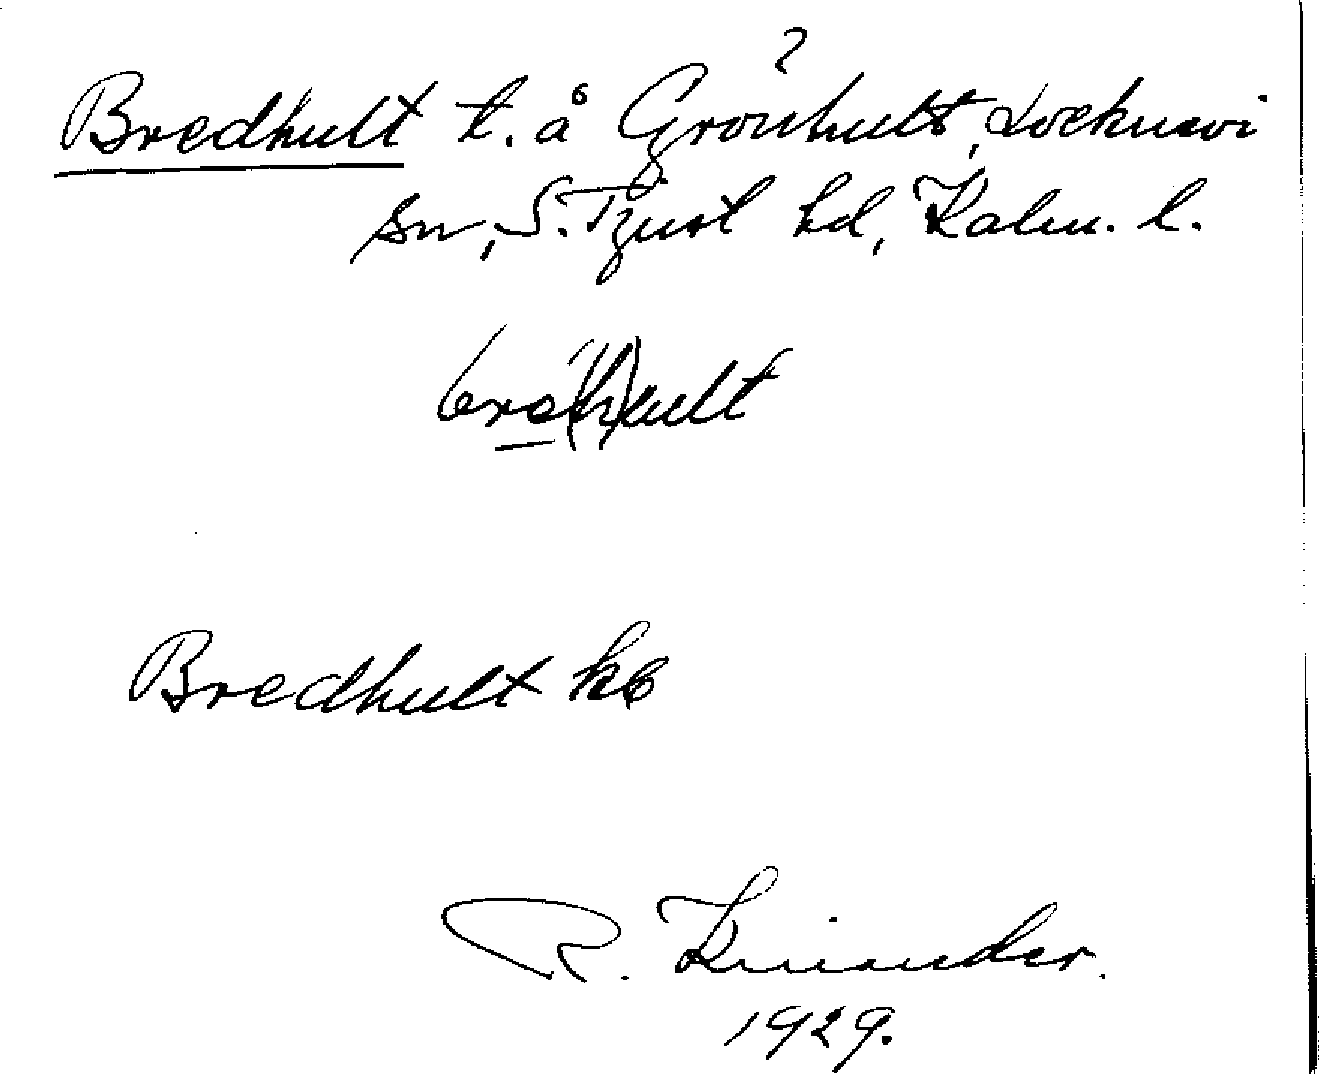 ?
Bredhult t. å Grönhult, Locknevi
sn, S. Tjust hd, Kalm. l.
brä(h)ult
Bredhult kb
R. Kinander.
1929.